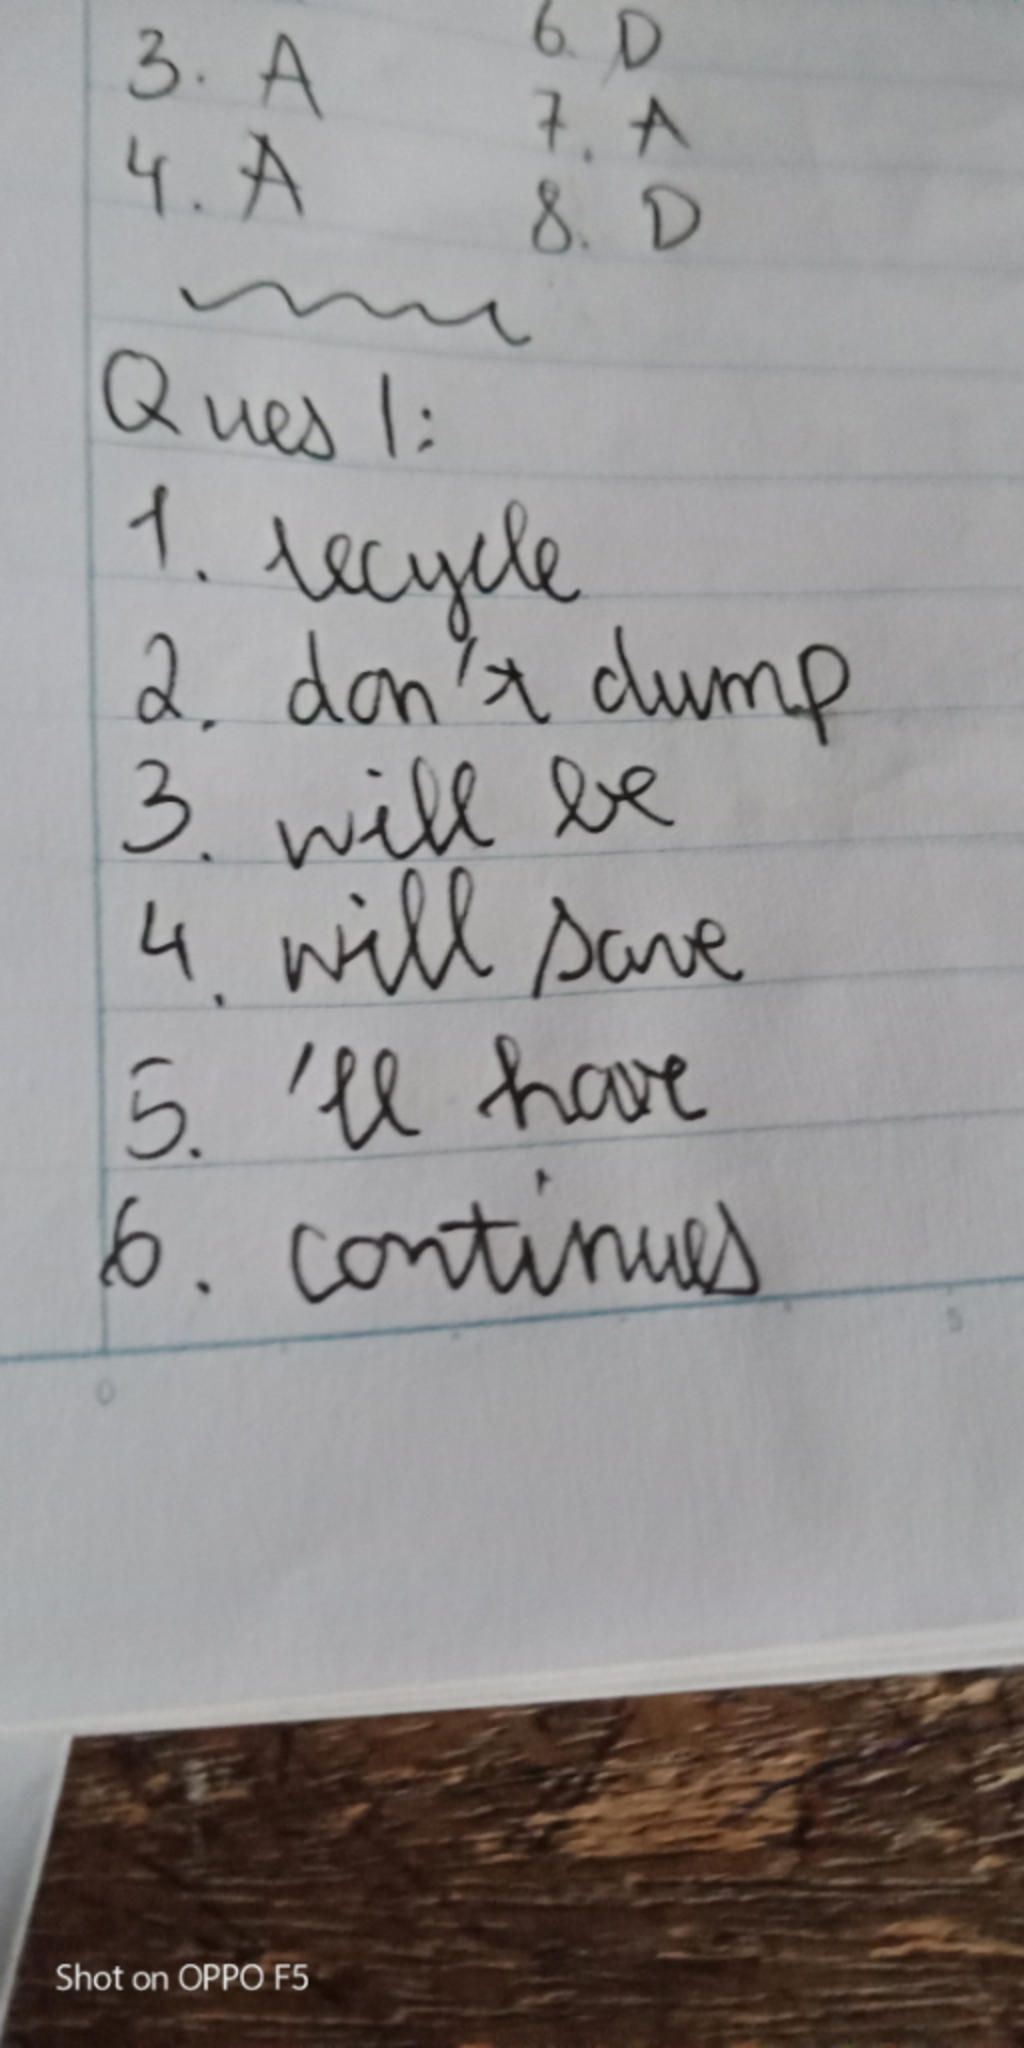 3. A
4. A
6. D
7. A
8. D
Ques 1:
1. recycle
2. don't dump
3. will be
4. will save
5. 'll have
6. continues
0
5
Shot on OPPO F5